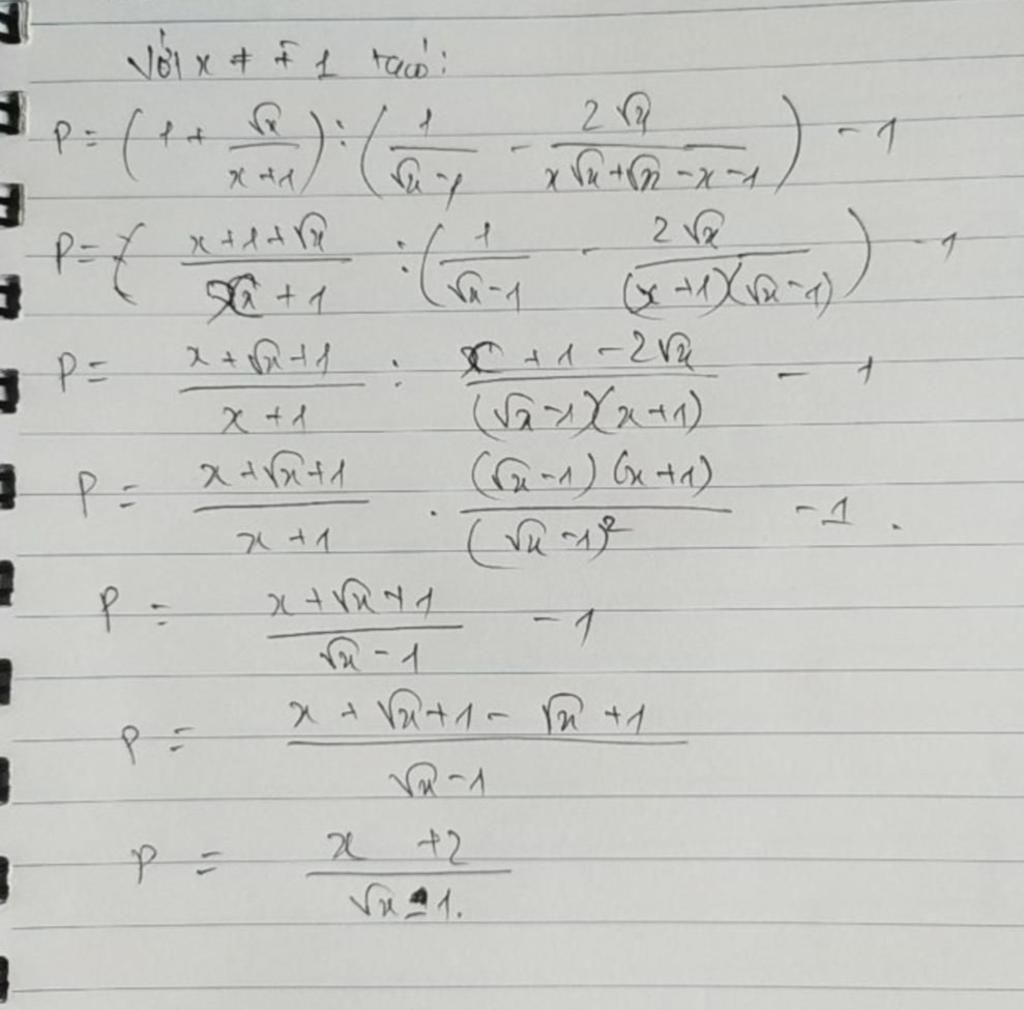 Với x ≠ ∓ 1 ta có:
P = (1 + √x/(x+1)) : (1/(√x-1) - 2√x/(x√x+√x-x-1)) - 1
P = ( (x+1+√x)/(x+1) : (1/(√x-1) - 2√x/((x+1)(√x-1))) - 1
P = (x+√x+1)/(x+1) : (x+1-2√x)/((√x-1)(x+1)) - 1
P = (x+√x+1)/(x+1) . ((√x-1)(x+1))/(√x-1)² - 1.
P = (x+√x+1)/(√x-1) - 1
P = (x+√x+1-√x+1)/(√x-1)
P = (x+2)/(√x-1).